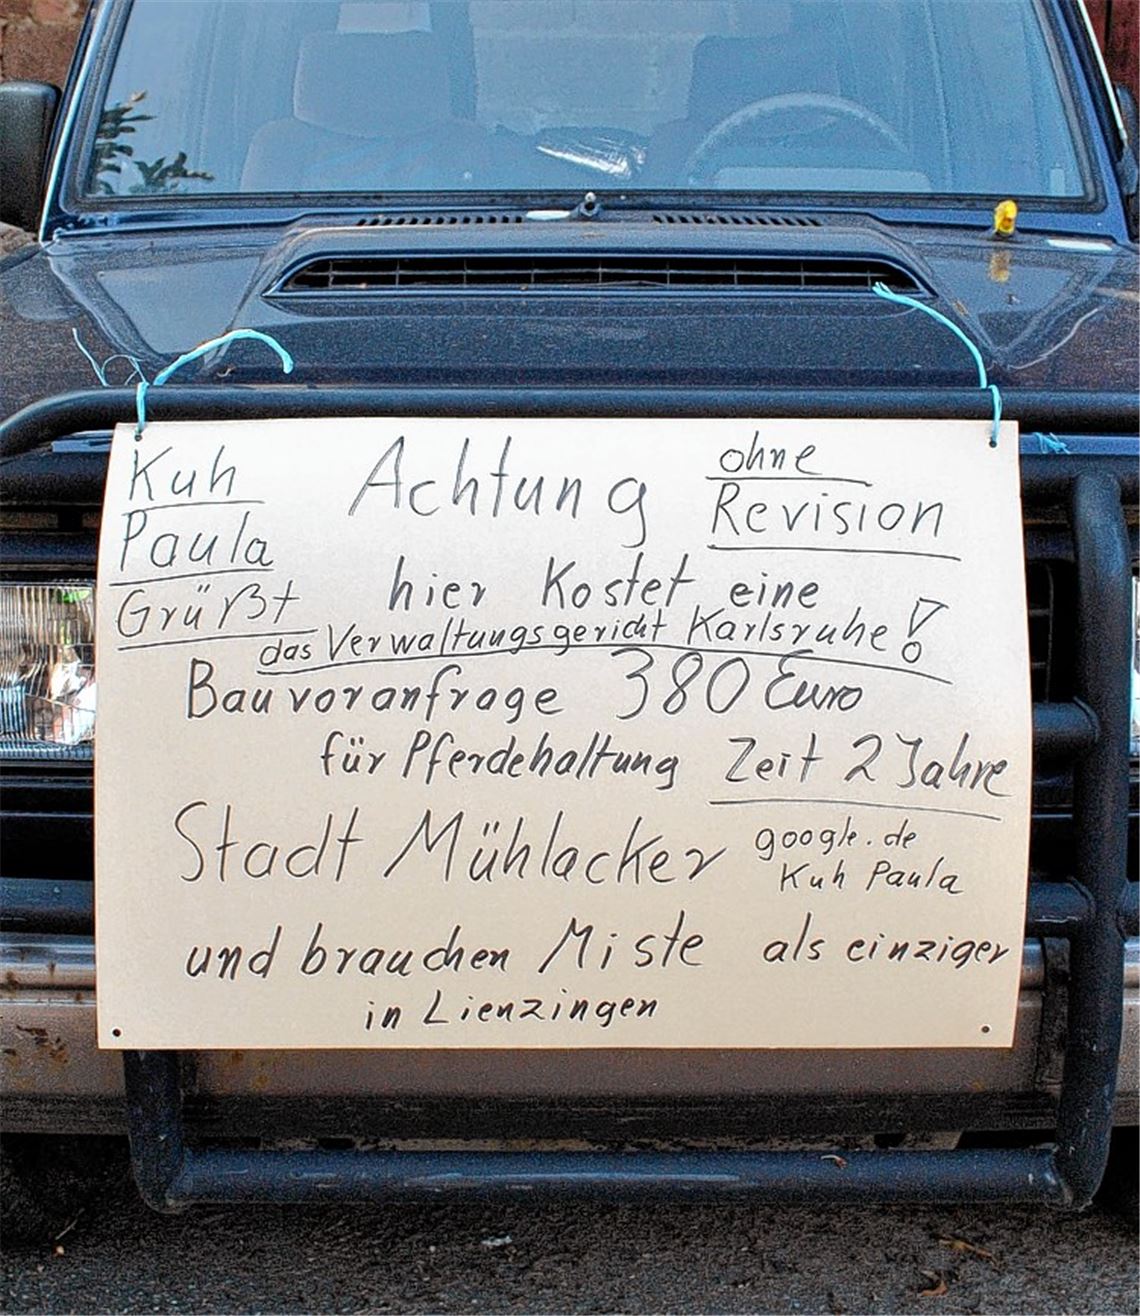 Kuh
Paula
Grüßt
das Verwaltungsgericht Karlsruhe!
Achtung
ohne
Revision
hier Kostet eine
Bauvoranfrage 380 Euro
für Pferdehaltung Zeit 2 Jahre
Stadt Mühlacker
google.de
Kuh Paula
und brauchen Miste als einziger
in Lienzingen